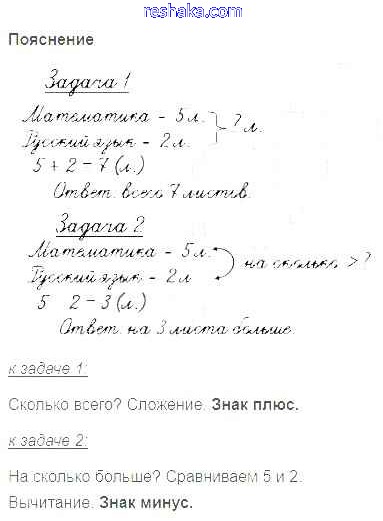 reshaka.com
Пояснение
Задача 1
Математика - 5 л.
Русский язык - 2 л.
? л.
5 + 2 - 7 (л.)
Ответ. всего 7 листов.
Задача 2
Математика - 5 л.
Русский язык - 2 л
на сколько > ?
5 2 - 3 (л.)
Ответ. на 3 листа больше
к задаче 1:
Сколько всего? Сложение. Знак плюс.
к задаче 2:
На сколько больше? Сравниваем 5 и 2.
Вычитание. Знак минус.